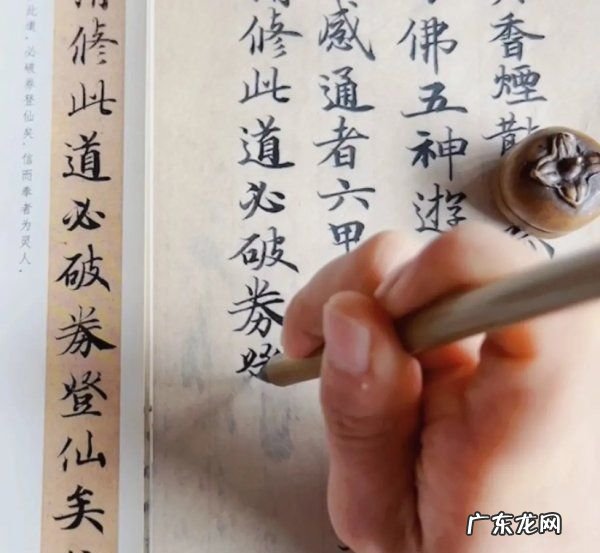 香煙散
佛五神遊
感通者六甲
修此道必破券登
修此道必破券登仙矣
此道，必破券登仙矣，信而奉者为灵人。
广东龙网